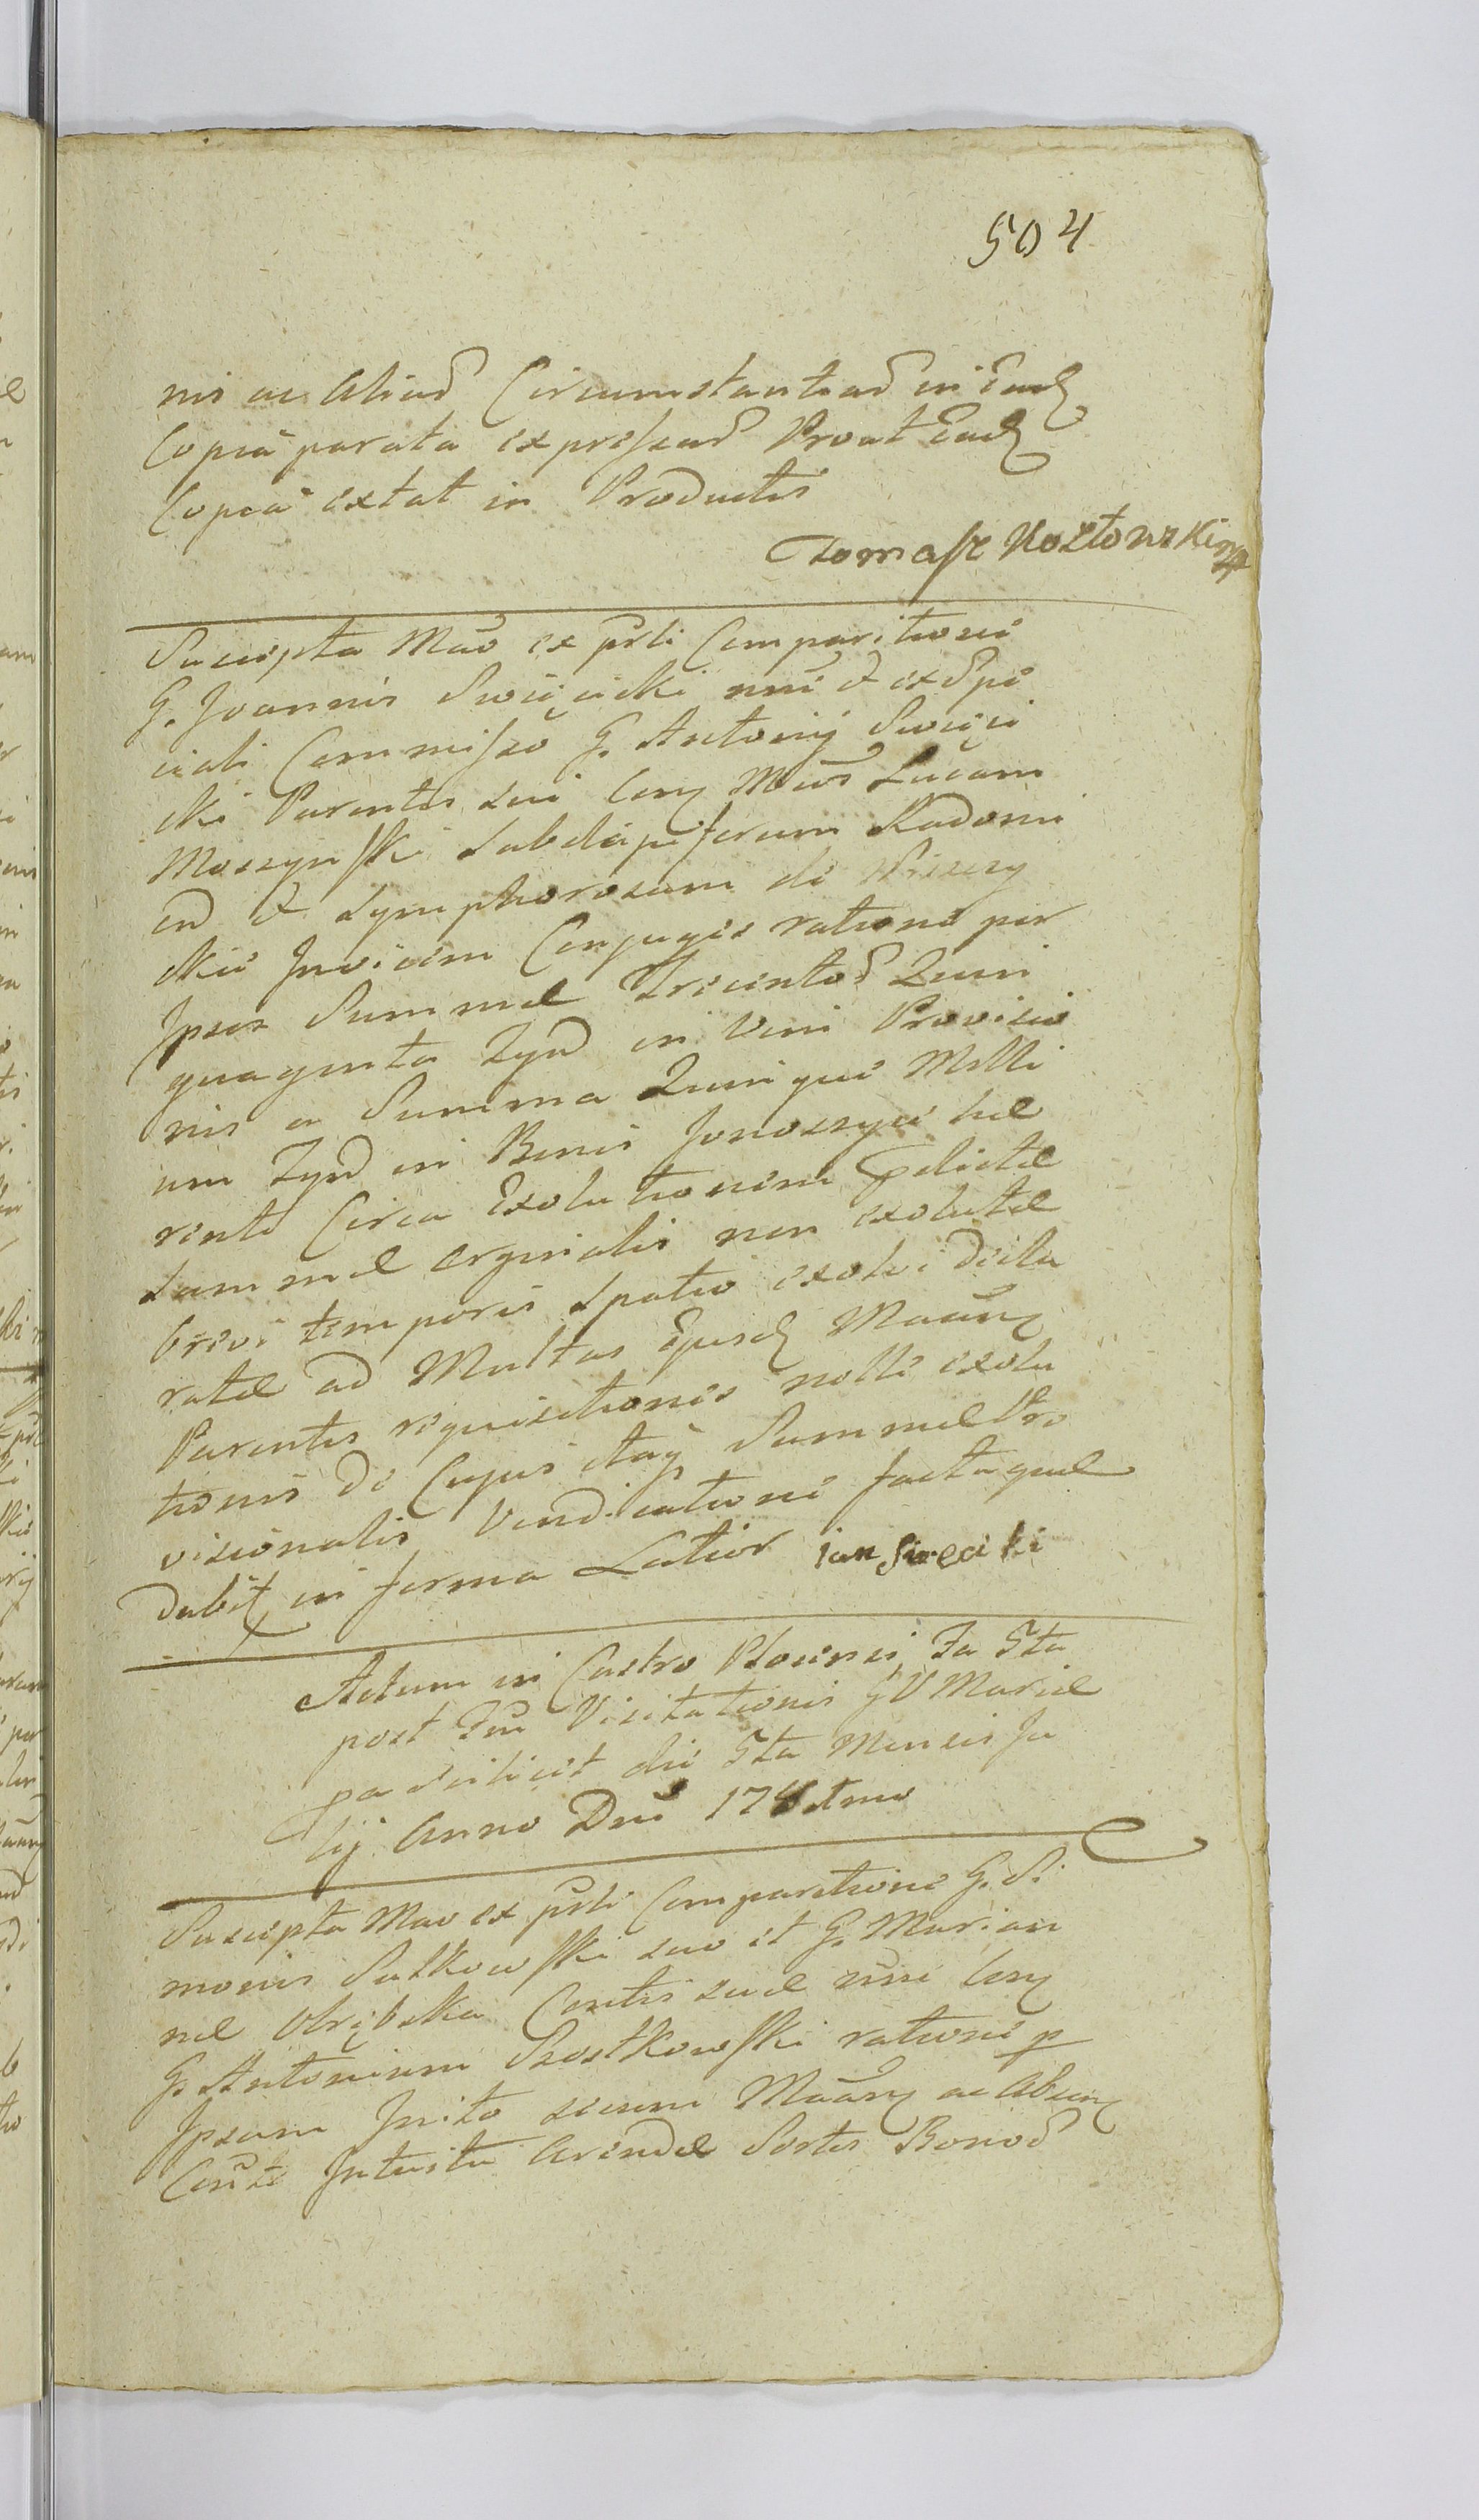 504
nis ac Aliaru Circumstantiaru in Ead
Copia parata expressaru Prout Ead
Copia extat in Productis
Tomasz Kozłowski
Suscepta Mão ex psli Comparitione
G. Joannis Swięcicki nni & ex Spe
ciali Commisso G. Antonij Swięci
cki Parentis sui Conz Mcos Lucam
Moszynski Subdapiferum Radomi
en & Symphorosam de
ckie Invicem Conjuges ratione per
Ipsos Summæ Trecentor Quin
quaginta Zyn in Vim Provisio
nis a Summa Quinque Milli
um Zyn in Bonis Jonoszyce hæ
rente Circa Exolutionem Pdictæ
Summæ orginalis non exolutæ
brevi temporis Spatio exolvi decla
ratæ ad Multas Ejusd Maãnz
Parentis requisitiones nolle exolu
tionis de Cujus itaq Summæ Pro
visionalis Vendicatione factaque
dabit in forma Latior Jan Swięcicki
Actum in Castro Plocensi Fa 5ta
post Fm Visitationis G V Mariæ
pa scilicet die 5ta Mensis Ju
lij Anno Dni 174
Suscepta Mão ex psli Comparitione G. Si
monis Sutkowski suo et G. Marian
næ Obrębska Contis suæ nni Conz
G. Antonium Szostkowski ratione p
Ipsum Inito secum Maãnz ac Absenz
Conte Intuitu Arendæ Sortis Bonor